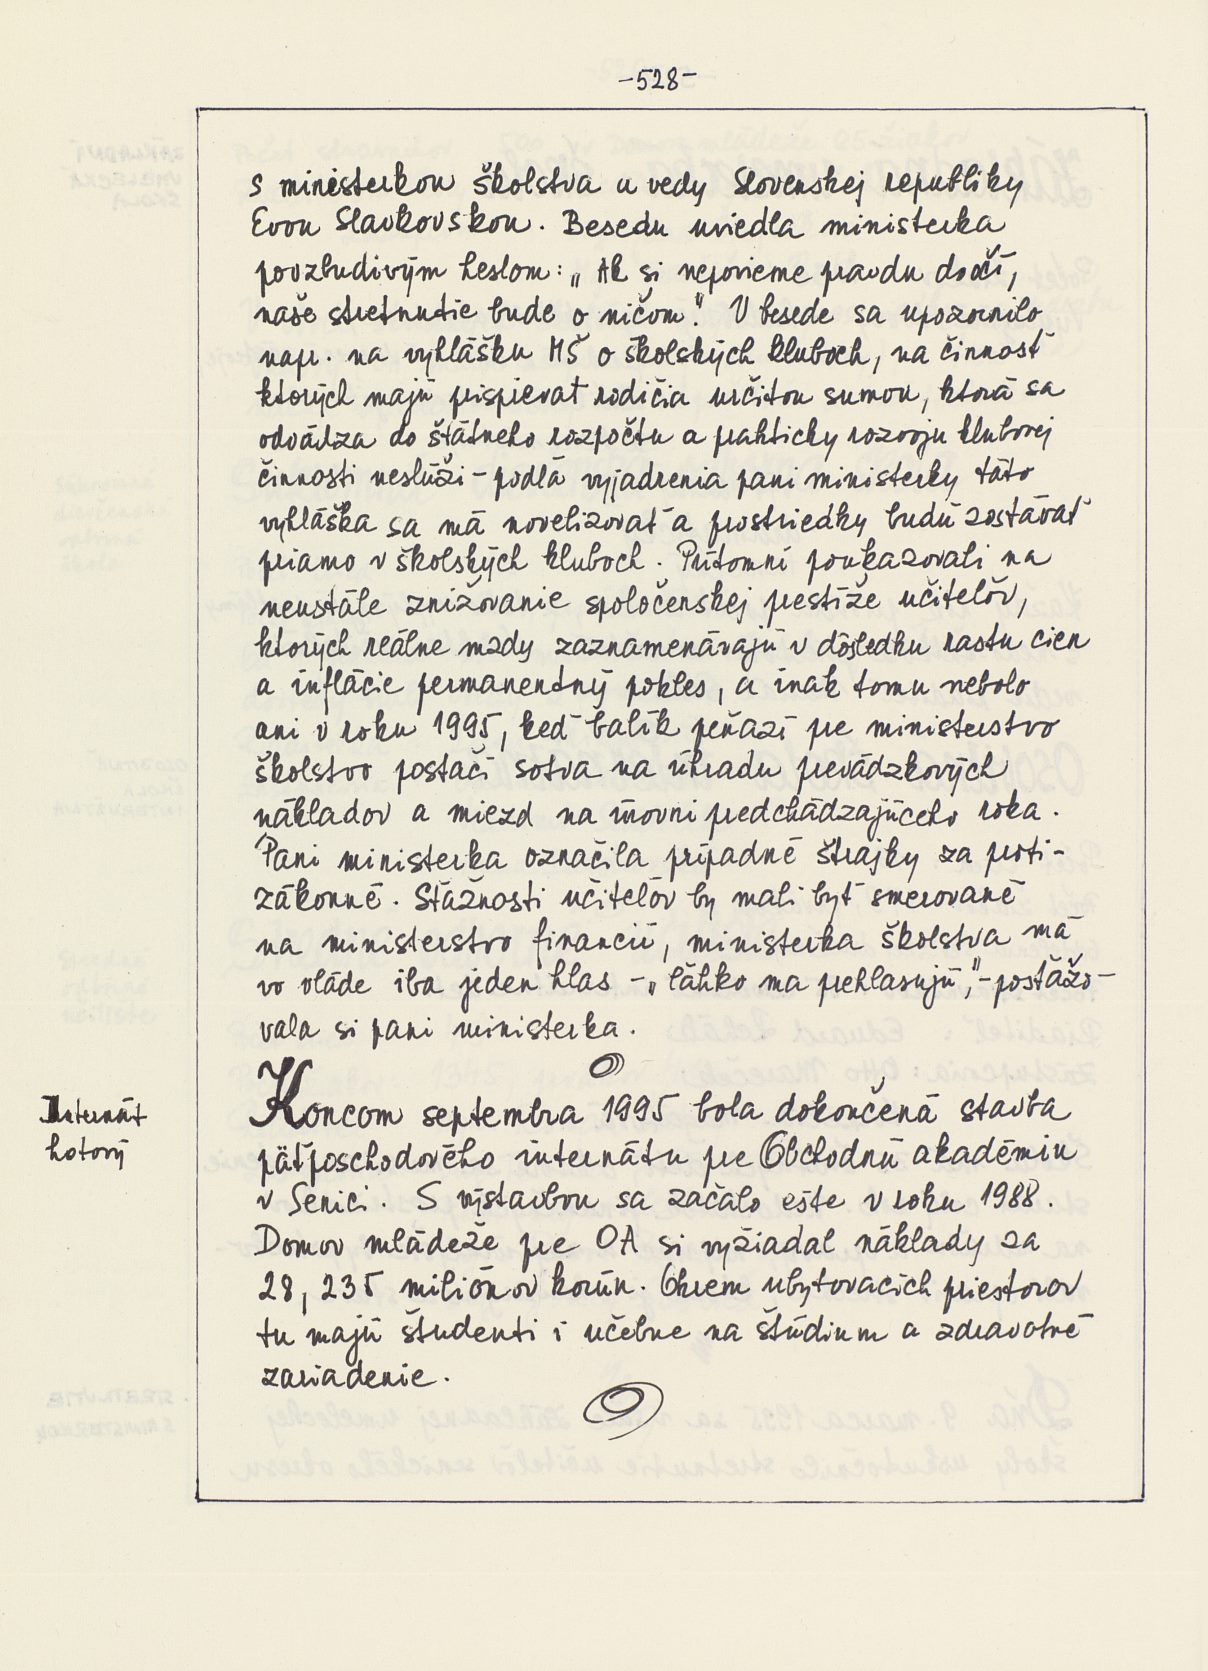 -528-
s ministerkou školstva a vedy Slovenskej republiky
Evou Slavkovskou. Besedu uviedla ministerka
povzbudivým heslom: „Ak si nepovieme pravdu do očí,
naše stretnutie bude o ničom." V besede sa upozornilo
napr. na vyhlášku MŠ o školských kluboch, na činnosť
ktorých majú prispievať rodičia určitou sumou, ktorá sa
odvádza do štátneho rozpočtu a prakticky rozvoju klubovej
činnosti neslúži - podľa vyjadrenia pani ministerky táto
vyhláška sa má novelizovať a prostriedky budú zostávať
priamo v školských kluboch. Prítomní poukazovali na
neustále znižovanie spoločenskej prestíže učiteľov,
ktorých reálne mzdy zaznamenávajú v dôsledku rastu cien
a inflácie permanentný pokles, a inak tomu nebolo
ani v roku 1995, keď balík peňazí pre ministerstvo
školstvo postačí sotva na úhradu prevádzkových
nákladov a miezd na úrovni predchádzajúceho roka.
Pani ministerka označila prípadné štrajky za proti-
zákonné. Stážnosti učiteľov by mali byť smerované
na ministerstvo financií, ministerka školstva má
vo vláde iba jeden hlas - „ľahko ma prehlasujú," - postážo-
vala si pani ministerka.
Internát
hotový
Koncom septembra 1995 bola dokončená stavba
päťposchodového internátu pre Obchodnú akadémiu
v Senici. S výstavbou sa začalo ešte v roku 1988.
Domov mládeže pre OA si vyžiadal náklady za
28,235 miliónov korún. Okrem ubytovacích priestorov
tu majú študenti i učebne na štúdium a zdravotné
zariadenie.